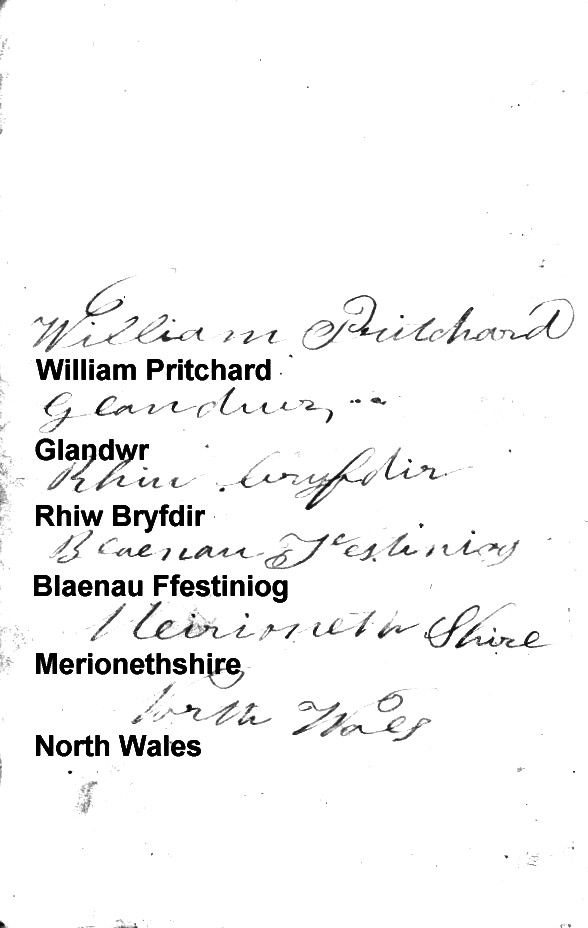 William Pritchard
William Pritchard
Glandwr,
Glandwr
Rhiw Bryfdir
Rhiw Bryfdir
Blaenau Festiniog
Blaenau Ffestiniog
Meirioneth Shire
Merionethshire
North Wales
North Wales